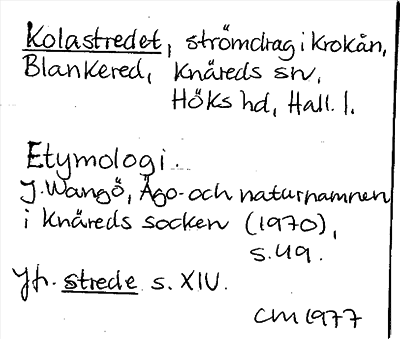 Kolastredet, strömdrag i Krokån,
Blankered, Knäreds sn,
Höks hd, Hall. l.
Etymologi.
J. Wangö, Ägo- och naturnamnen
i Knäreds socken (1970),
s. 49.
Jfr. strede s. XIV.
CM 1977